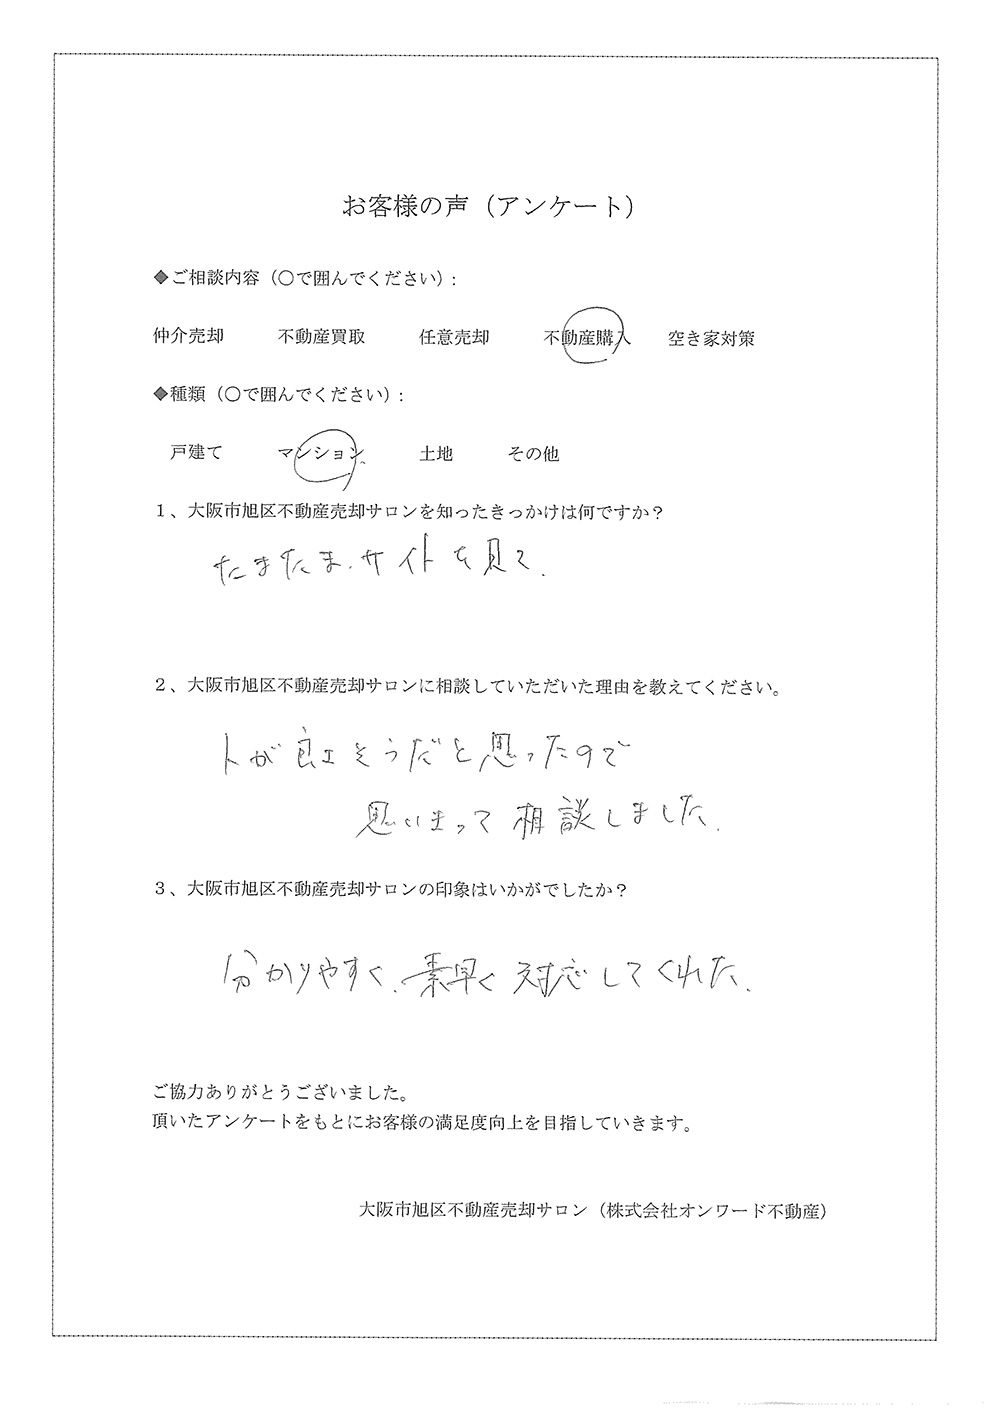 お客様の声（アンケート）
◆ご相談内容（○で囲んでください）:
仲介売却　不動産買取　任意売却　不動産購入　空き家対策
◆種類（○で囲んでください）:
戸建て　マンション　土地　その他
１、大阪市旭区不動産売却サロンを知ったきっかけは何ですか？
たまたま、サイトを見て.
２、大阪市旭区不動産売却サロンに相談していただいた理由を教えてください。
人が良さそうだと思ったので
思いきって相談しました.
３、大阪市旭区不動産売却サロンの印象はいかがでしたか？
分かりやすく、素早く対応してくれた.
ご協力ありがとうございました。
頂いたアンケートをもとにお客様の満足度向上を目指していきます。
大阪市旭区不動産売却サロン（株式会社オンワード不動産）